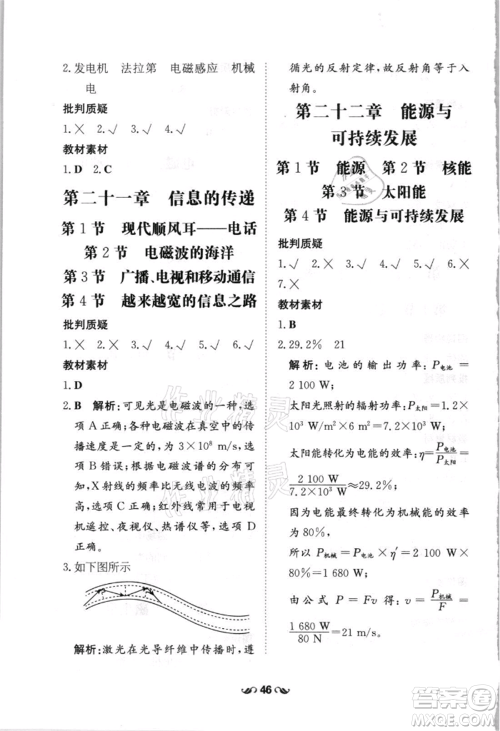 2. 发电机　法拉第　电磁感应　机械
电
批判质疑
1. × 2. √ 3. √ 4. ×
教材素材
1. D 2. C
第二十一章　信息的传递
第1节　现代顺风耳——电话
第2节　电磁波的海洋
第3节　广播、电视和移动通信
第4节　越来越宽的信息之路
批判质疑
1. √ 2. × 3. √ 4. × 5. √
教材素材
1. D
2. B　解析：可见光是电磁波的一种，选
项 A 正确；各种电磁波在真空中的传
播速度均为 3×10⁸ m/s，选项 B 错
误；X 射线的频率比无线电波的频率
高，选项 C 正确；红外线常用于电视
机遥控、夜视仪、热谱仪等，选项 D
正确。
3. 如下图所示
解析：激光在光导纤维中传播时遵
循光的反射定律，故反射角等于入
射角。
第二十二章　能源与
可持续发展
第1节　能源　第2节　核能
第3节　太阳能
第4节　能源与可持续发展
批判质疑
1. √ 2. √ 3. √ 4. × 5. × 6. √
7. ×
教材素材
1. B
2. 29.2%　21
解析：电池的输出功率：P电池＝
2 100 W
太阳光照的辐射功率：P太阳＝1.2×
6 000 W＝7.2×10³ W
太阳能转化为电能的效率：η＝P电池/P太阳＝
2 100 W/7.2×10³ W≈29.2%。
因为电能最终转化为机械能的效率为
80%，
所以 P机械＝P电池×η′＝2 100 W×
80%＝1 680 W；
由公式 P＝Fv 得：v＝P机械/F＝
1 680 W/80 N＝21 m/s。
46
作业精灵
作业精灵
答案圈
MXQE.COM